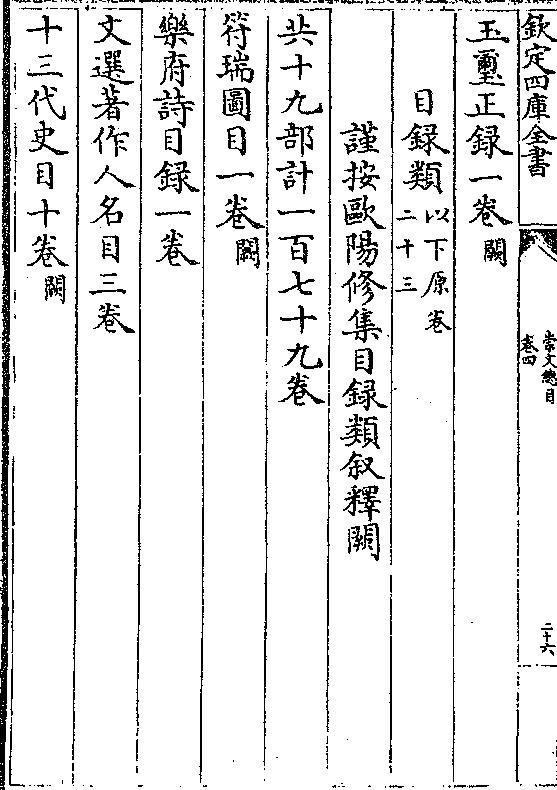 欽定四庫全書
崇文總目
卷四
二十六
玉璽正録一卷闕
目録類以下原卷
二十三
謹按歐陽修集目録類叙釋闕
共十九部計一百七十九卷
符瑞圖目一卷闕
樂府詩目録一卷
文選著作人名目三卷
十三代史目十卷闕